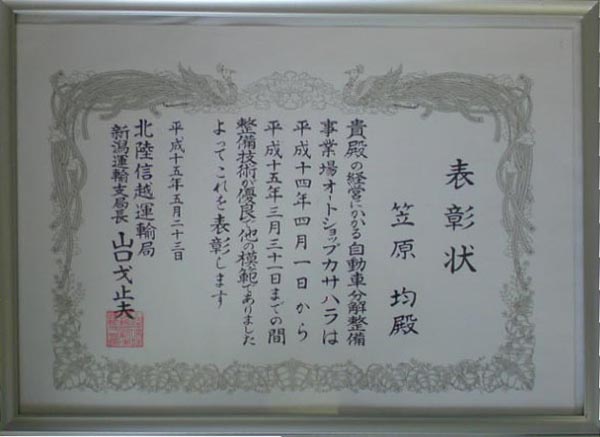 表彰状
笠原 均殿
貴殿の経営にかかる自動車分解整備
事業場オートショップカサハラは
平成十四年四月一日から
平成十五年三月三十一日までの間
整備技術が優良で他の模範でありました
よってこれを表彰します
平成十五年五月二十三日
北陸信越運輸局
新潟運輸支局長 山口戈止夫